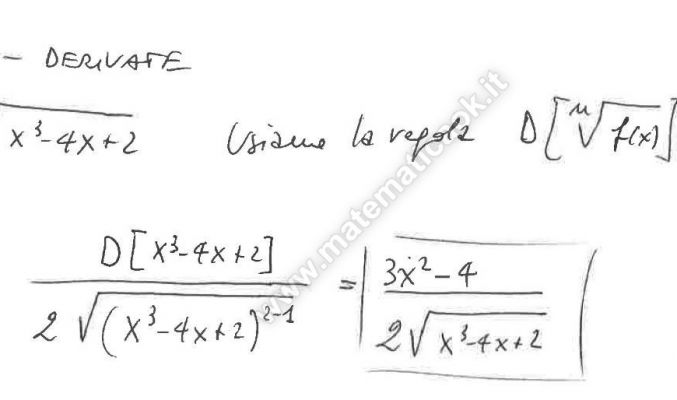 - DERIVATE
√(x³-4x+2) Usiamo la regola D[ⁿ√f(x)]
D[x³-4x+2] / 2√(x³-4x+2)²⁻¹ = 3x²-4 / 2√(x³-4x+2)
www.matematicaok.it